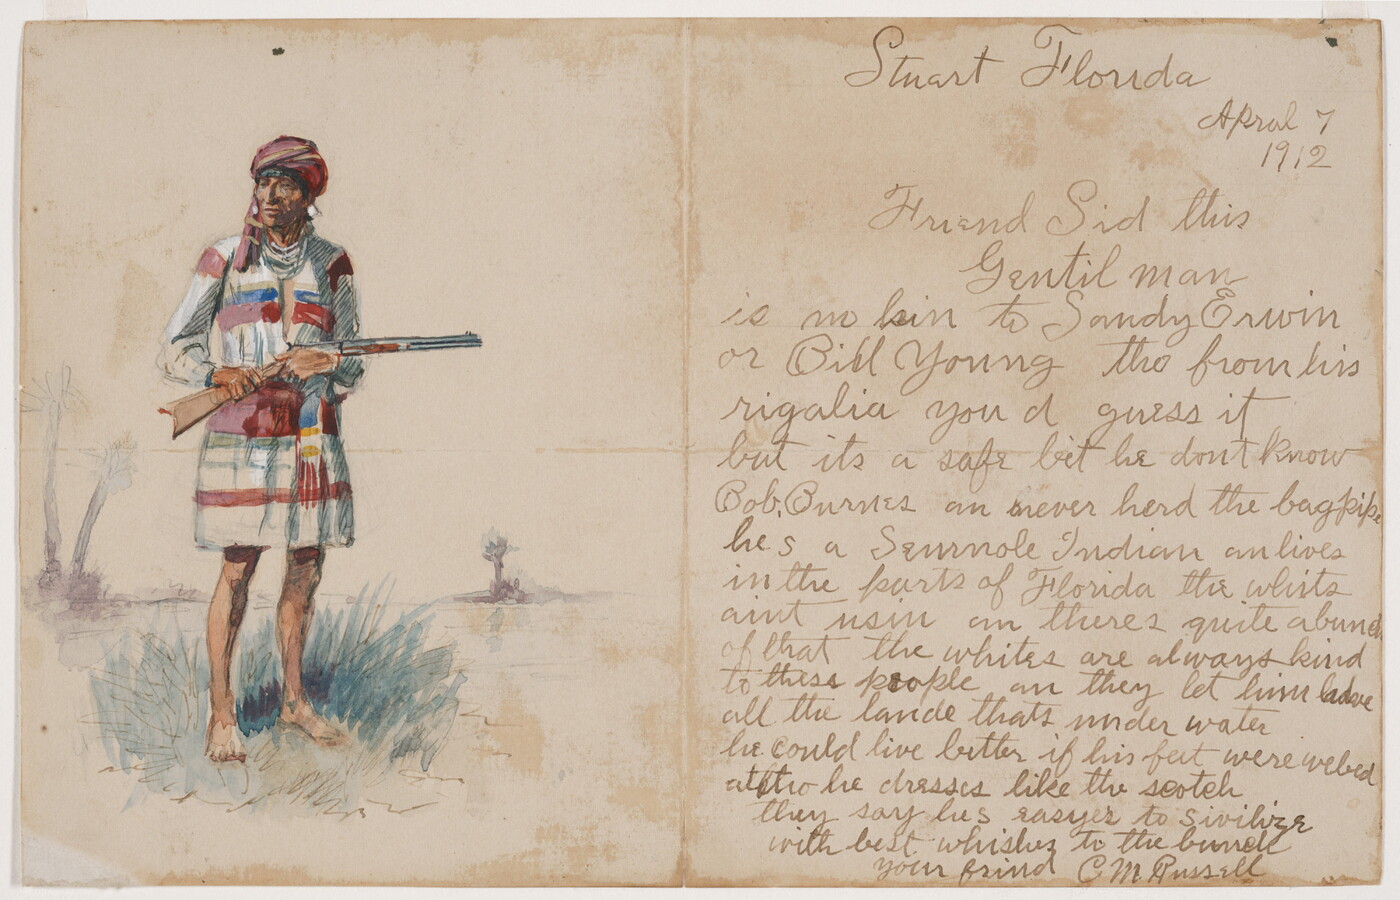 Stuart Florida
Apral 7
1912
Friend Sid this
Gentil man
is no kin to Sandy Erwin
or Bill Young tho from his
rigalia you d guess it
but its a safe bet he dont know
Bob. Burnes an never herd the bagpipe
hes a Semnole Indian an lives
in the parts of Florida the whits
aint usin an theres quite a bunch
of that the whites are always kind
to thess people an they let him have
all the lande thats under water
he could live better if his feet were webed
altho he dresses like the scotch
they say hes easyer to sivilize
with best whishes to the bunch
your frind C M Russell